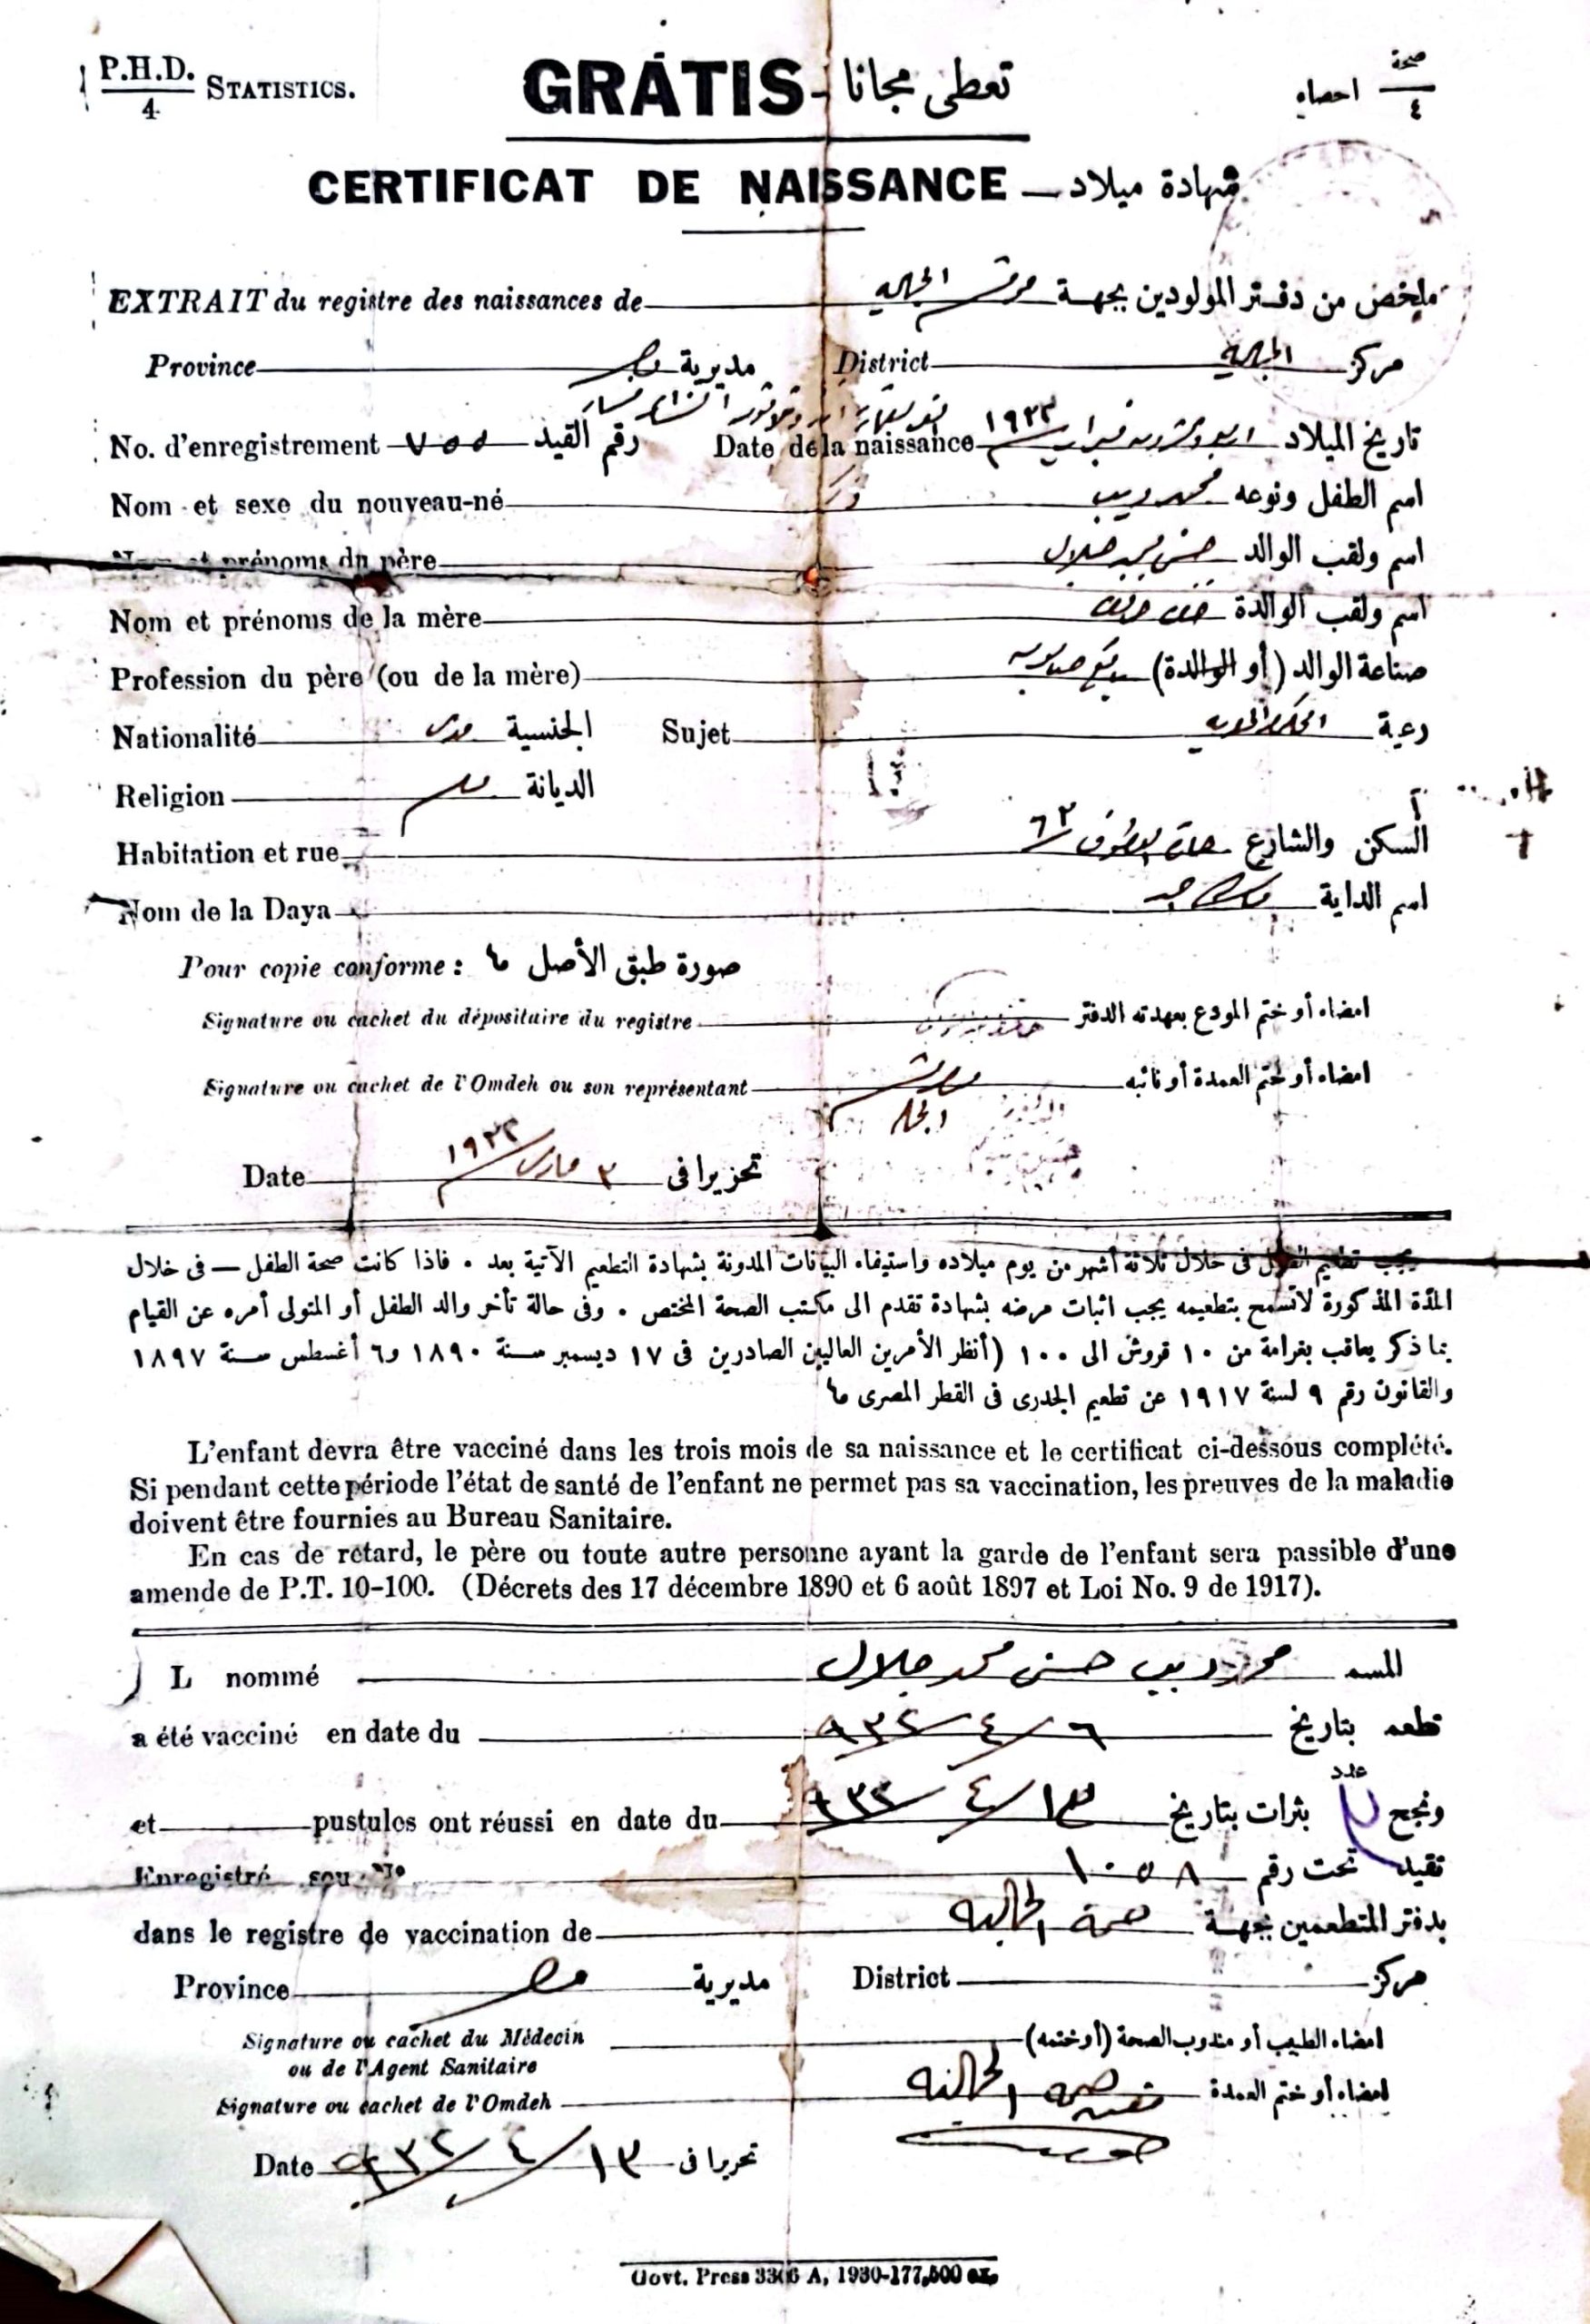 P.H.D. / 4 STATISTICS. GRATIS - تعطى مجانا صحة / ٤ احصاء
CERTIFICAT DE NAISSANCE — شهادة ميلاد
EXTRAIT du registre des naissances de ملخص من دفتر المولودين بجهة
Province مديرية مصر District مركز الجماليه
No. d'enregistrement ٧٥٥ رقم القيد Date de la naissance تاريخ الميلاد فبراير ١٩٣٢
Nom et sexe du nouveau-né ذكر اسم الطفل ونوعه محمد
Nom et prénoms du père اسم ولقب الوالد حسن محمد جلال
Nom et prénoms de la mère اسم ولقب الوالدة
Profession du père (ou de la mère) صناعة الوالد (أو الوالدة)
Nationalité الجنسية Sujet رعية
Religion الديانة مسلم
Habitation et rue السكن والشارع
Nom de la Daya اسم الداية
Pour copie conforme : صورة طبق الأصل
Signature ou cachet du dépositaire du registre امضاء أو ختم المودع بعهدته الدفتر
Signature ou cachet de l'Omdeh ou son représentant امضاء أو ختم العمدة أو نائبه
Date ٣ مارس ١٩٣٢ تحريرا فى
يجب تطعيم الطفل فى خلال ثلاثة أشهر من يوم ميلاده واستيفاء البيانات المدونة بشهادة التطعيم الآتية بعد . فاذا كانت صحة الطفل — فى خلال
المدة المذكورة لاتسمح بتطعيمه يجب اثبات مرضه بشهادة تقدم الى مكتب الصحة المختص . وفى حالة تأخر والد الطفل أو المتولى أمره عن القيام
بما ذكر يعاقب بغرامة من ١٠ قروش الى ١٠٠ (أنظر الأمرين العاليين الصادرين فى ١٧ ديسمبر سنة ١٨٩٠ و٦ أغسطس سنة ١٨٩٧
والقانون رقم ٩ لسنة ١٩١٧ عن تطعيم الجدرى فى القطر المصرى
L'enfant devra être vacciné dans les trois mois de sa naissance et le certificat ci-dessous complété.
Si pendant cette période l'état de santé de l'enfant ne permet pas sa vaccination, les preuves de la maladie
doivent être fournies au Bureau Sanitaire.
En cas de retard, le père ou toute autre personne ayant la garde de l'enfant sera passible d'une
amende de P.T. 10-100. (Décrets des 17 décembre 1890 et 6 août 1897 et Loi No. 9 de 1917).
L nommé المسمى محمد حسن محمد جلال
a été vacciné en date du طعم بتاريخ ٦/٤/٩٣٢
et pustules ont réussi en date du ونجح عدد بثرات بتاريخ ١٣/٤/٩٣٢
Enregistré sou No تقيد تحت رقم ١٠٥٨
dans le registre de vaccination de بدفتر المتطعمين بجهة صحة الجماليه
Province مديرية مصر District مركز
Signature ou cachet du Médecin امضاء الطبيب أو مندوب الصحة (أو ختمه)
ou de l'Agent Sanitaire
Signature ou cachet de l'Omdeh امضاء أو ختم العمدة
Date ١٣/٤/٩٣٢ تحريرا فى
Govt. Press 3306 A, 1930-177,500 ex.